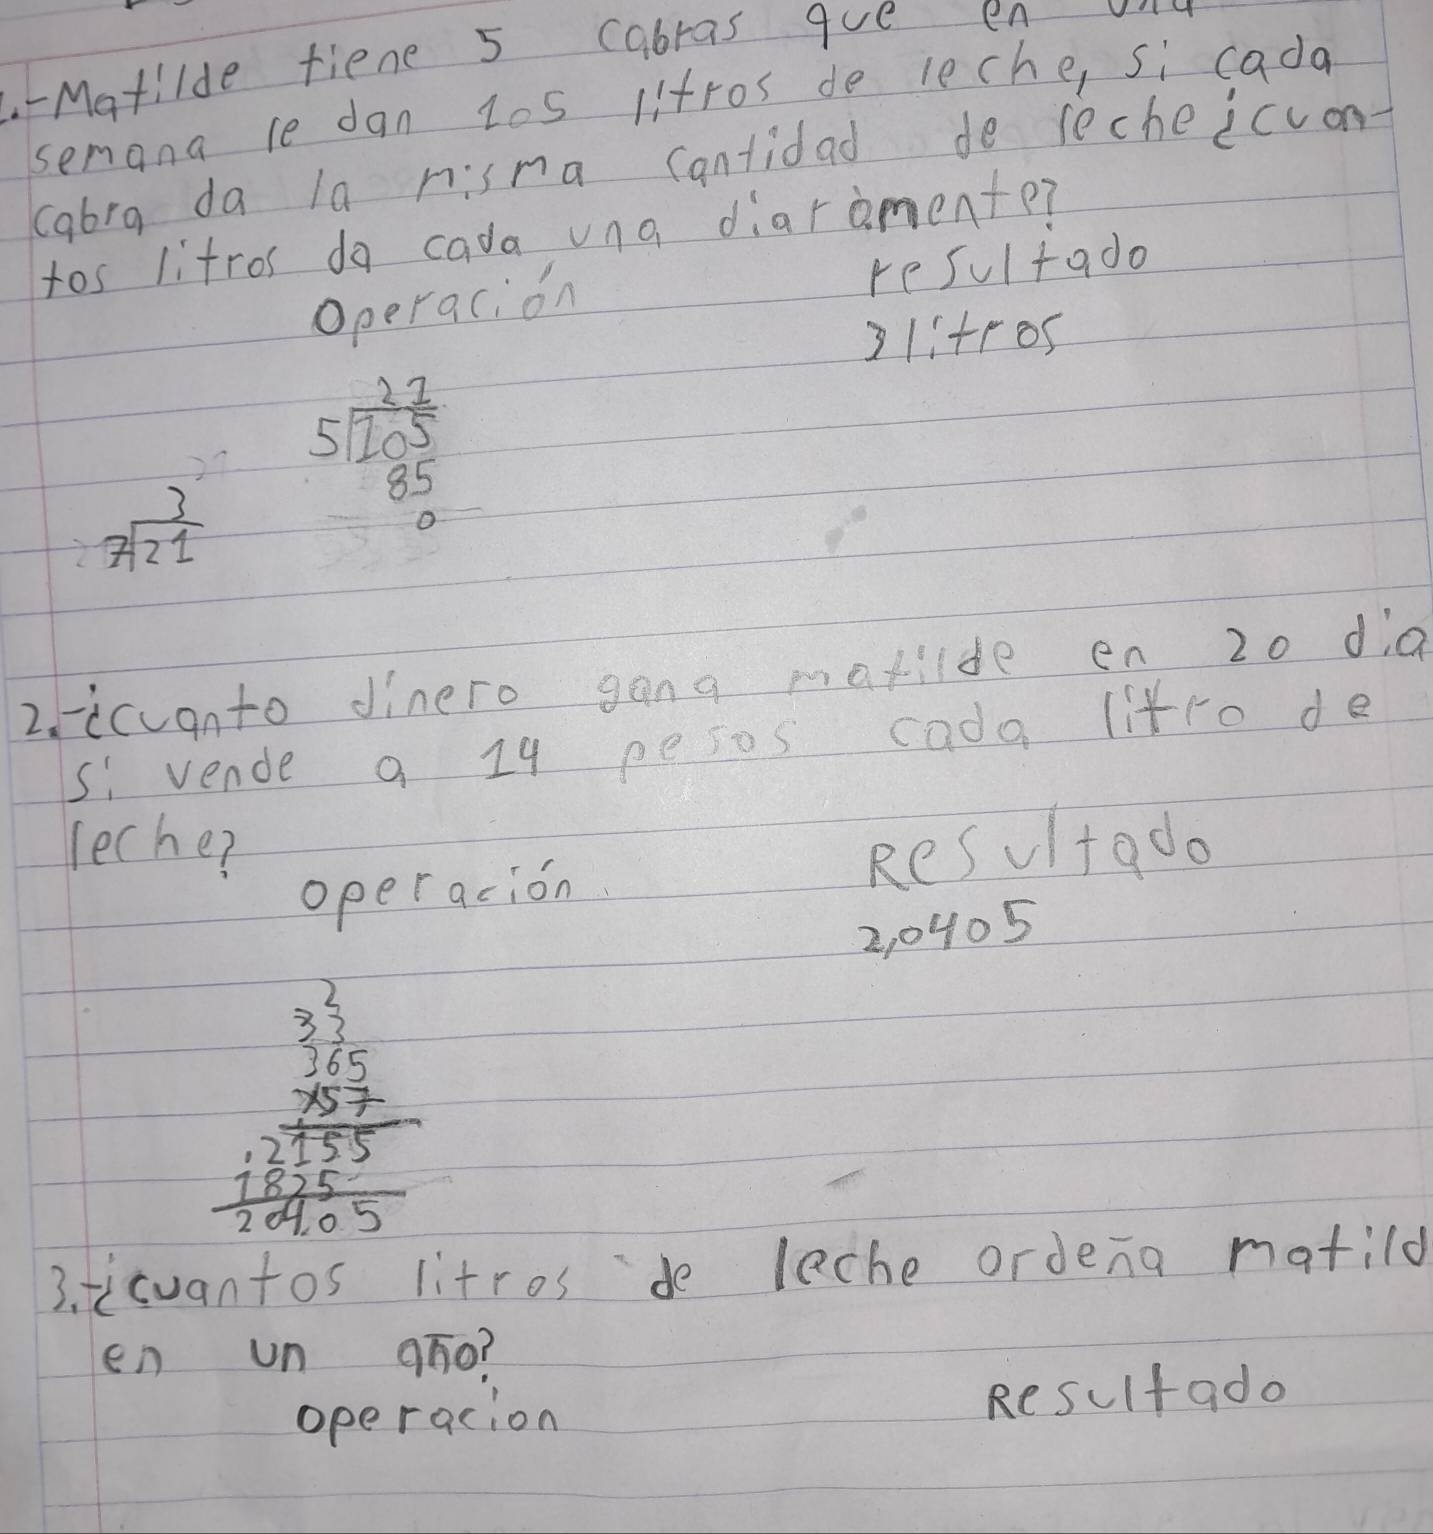 1.-Matilde tiene 5 cabras que en una
semana le dan 105 litros de leche, si cada
cabra da la misma cantidad de leche ¿cuan-
tos litros da cada una diaramente?
Operación resultado
3 litros
21
5 105
85
0
3
7 21
2.-¿cuanto dinero gana matilde en 20 dia
si vende a 14 pesos cada litro de
leche?
operación. Resultado
2,0405
2
33
365
x57
2155
1825
20405
3.-¿cuantos litros de leche ordeña matild
en un año?
operacion Resultado